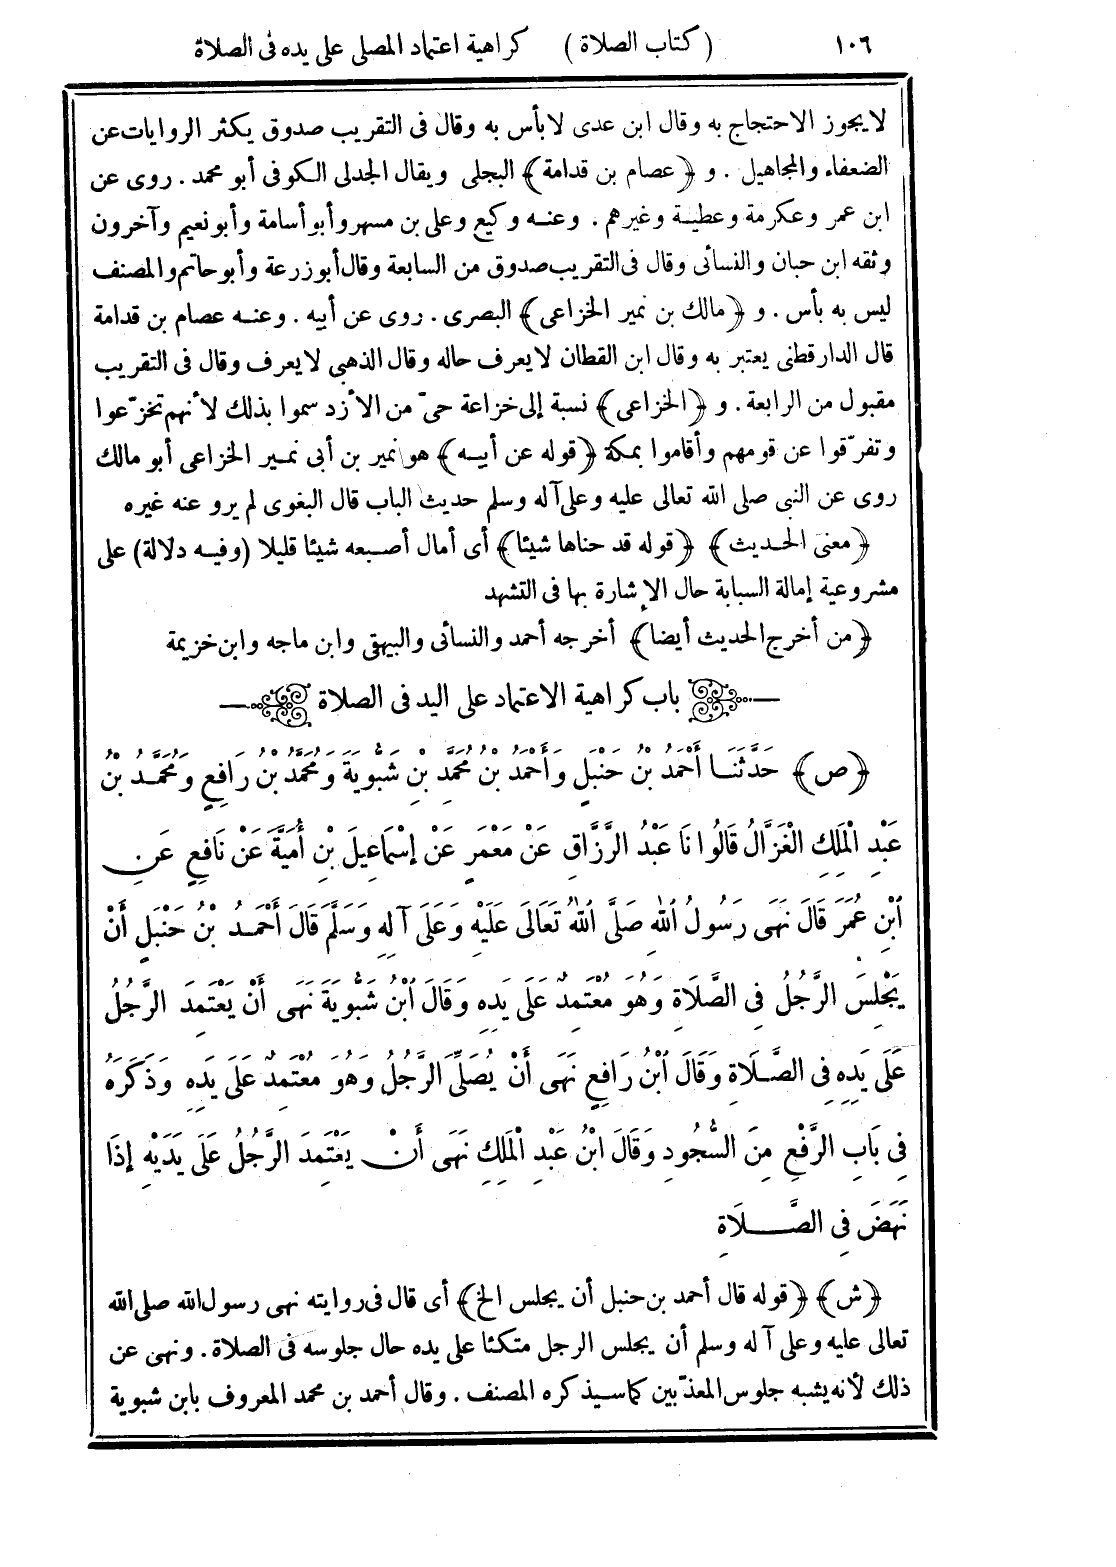 ١٠٦ (كتاب الصلاة) كراهية اعتماد المصلى على يده فى الصلاة
لايجوز الاحتجاج به وقال ابن عدى لابأس به وقال فى التقريب صدوق يكثر الروايات عن
الضعفاء والمجاهيل . و ﴿عصام بن قدامة﴾ البجلى ويقال الجدلى الكوفى أبو محمد . روى عن
ابن عمر وعكرمة وعطية وغيرهم . وعنه وكيع وعلى بن مسهر وأبو أسامة وأبو نعيم وآخرون
وثقه ابن حبان والنسائى وقال فى التقريب صدوق من السابعة وقال أبوزرعة وأبوحاتم والمصنف
ليس به بأس . و ﴿مالك بن نمير الخزاعى﴾ البصرى . روى عن أبيه . وعنه عصام بن قدامة
قال الدارقطنى يعتبر به وقال ابن القطان لايعرف حاله وقال الذهبى لايعرف وقال فى التقريب
مقبول من الرابعة . و ﴿الخزاعى﴾ نسبة إلى خزاعة حىّ من الأزد سموا بذلك لأنهم تخزّعوا
وتفرّقوا عن قومهم وأقاموا بمكة ﴿قوله عن أبيه﴾ هو نمير بن أبى نمير الخزاعى أبو مالك
روى عن النبى صلى الله تعالى عليه وعلى آله وسلم حديث الباب قال البغوى لم يرو عنه غيره
﴿معنى الحديث﴾ ﴿قوله قد حناها شيئا﴾ أى أمال أصبعه شيئا قليلا (وفيه دلالة) على
مشروعية إمالة السبابة حال الإشارة بها فى التشهد
﴿من أخرج الحديث أيضا﴾ أخرجه أحمد والنسائى والبيهقى وابن ماجه وابن خزيمة
باب كراهية الاعتماد على اليد فى الصلاة
﴿ص﴾ حَدَّثَنَا أَحْمَدُ بْنُ حَنْبَلٍ وَأَحْمَدُ بْنُ مُحَمَّدِ بْنِ شَبُّويَةَ وَمُحَمَّدُ بْنُ رَافِعٍ وَمُحَمَّدُ بْنُ
عَبْدِ الْمَلِكِ الْغَزَّالُ قَالُوا نَا عَبْدُ الرَّزَّاقِ عَنْ مَعْمَرٍ عَنْ إِسْمَاعِيلَ بْنِ أُمَيَّةَ عَنْ نَافِعٍ عَنِ
ابْنِ عُمَرَ قَالَ نَهَى رَسُولُ اللهِ صَلَّى اللهُ تَعَالَى عَلَيْهِ وَعَلَى آلِهِ وَسَلَّمَ قَالَ أَحْمَدُ بْنُ حَنْبَلٍ أَنْ
يَجْلِسَ الرَّجُلُ فِى الصَّلَاةِ وَهُوَ مُعْتَمِدٌ عَلَى يَدِهِ وَقَالَ ابْنُ شَبُّويَةَ نَهَى أَنْ يَعْتَمِدَ الرَّجُلُ
عَلَى يَدِهِ فِى الصَّلَاةِ وَقَالَ ابْنُ رَافِعٍ نَهَى أَنْ يُصَلِّىَ الرَّجُلُ وَهُوَ مُعْتَمِدٌ عَلَى يَدِهِ وَذَكَرَهُ
فِى بَابِ الرَّفْعِ مِنَ السُّجُودِ وَقَالَ ابْنُ عَبْدِ الْمَلِكِ نَهَى أَنْ يَعْتَمِدَ الرَّجُلُ عَلَى يَدَيْهِ إِذَا
نَهَضَ فِى الصَّلَاةِ
﴿ش﴾ ﴿قوله قال أحمد بن حنبل أن يجلس الخ﴾ أى قال فى روايته نهى رسول الله صلى الله
تعالى عليه وعلى آله وسلم أن يجلس الرجل متكئا على يده حال جلوسه فى الصلاة . ونهى عن
ذلك لأنه يشبه جلوس المعذّبين كما سيذكره المصنف . وقال أحمد بن محمد المعروف بابن شبوية